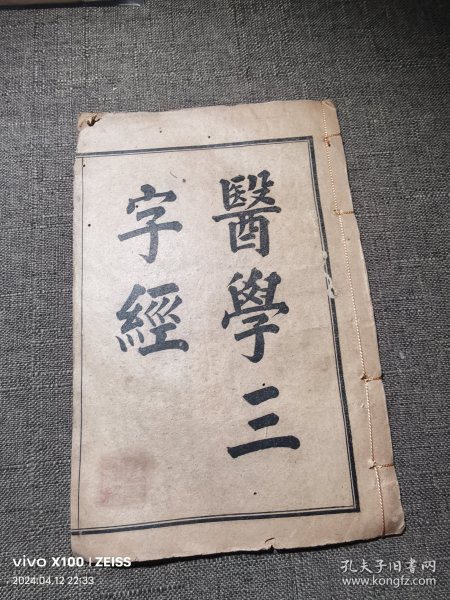 醫學三
字經
vivo X100 | ZEISS
2024.04.12 22:33
孔夫子旧书网
www.kongfz.com